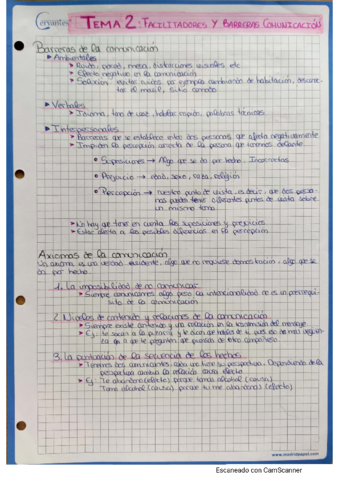 Cervantes TEMA 2: FACILITADORES Y BARRERAS COMUNICACIÓN
Barreras de la comunicación
Ambientales
Ruido, pared, mesa, distracciones visuales, etc
Efecto negativo en la comunicación
Solución: evitar ruidos, por ejemplo cambiando de habitación,
tar el móvil, sitio cómodo
Verbales
Idioma, tono de voz, hablar rápido, palabras técnicas
Interpersonales
Barreras que se establece entre dos personas, que afecta negativamente
Impiden la percepción correcta de la persona que tenemos delante
Suposiciones → Algo que se da por hecho. Incorrectas
Prejuicio → edad, sexo, raza, religión
Percepción → nuestro punto de vista, es decir, que dos perso-
nas pueden tener diferentes puntos de vista sobre
un mismo tema
No hay que tener en cuenta las suposiciones y prejuicios
Estar alerta a las posibles diferencias en la percepción
Axiomas de la comunicación
Un axioma es una verdad evidente, algo que no requiere demostración, algo que se
da por hecho.
1. La imposibilidad de no comunicar
Siempre comunicamos algo pero la intencionalidad no es un prerrequi-
sito de la comunicación
2. Niveles de contenido y relaciones de la comunicación
Siempre existe contenido y una relación en la transmisión del mensaje
Ej: te sacan a la pizarra y te dicen que hables de ti pues eso da más vergüen-
za que a que te pregunten que piensas de otro compañero
3. La puntuación de la secuencia de los hechos
Tenemos dos comunicantes, cada uno tiene su perspectiva. Dependiendo de la
perspectiva cambia la relación causa efecto
Ej: Te abandono (efecto) porque tomas alcohol (causa)
Tomo alcohol (causa) porque tú me abandonas (efecto)
www.madridpapel.com
Escaneado con CamScanner